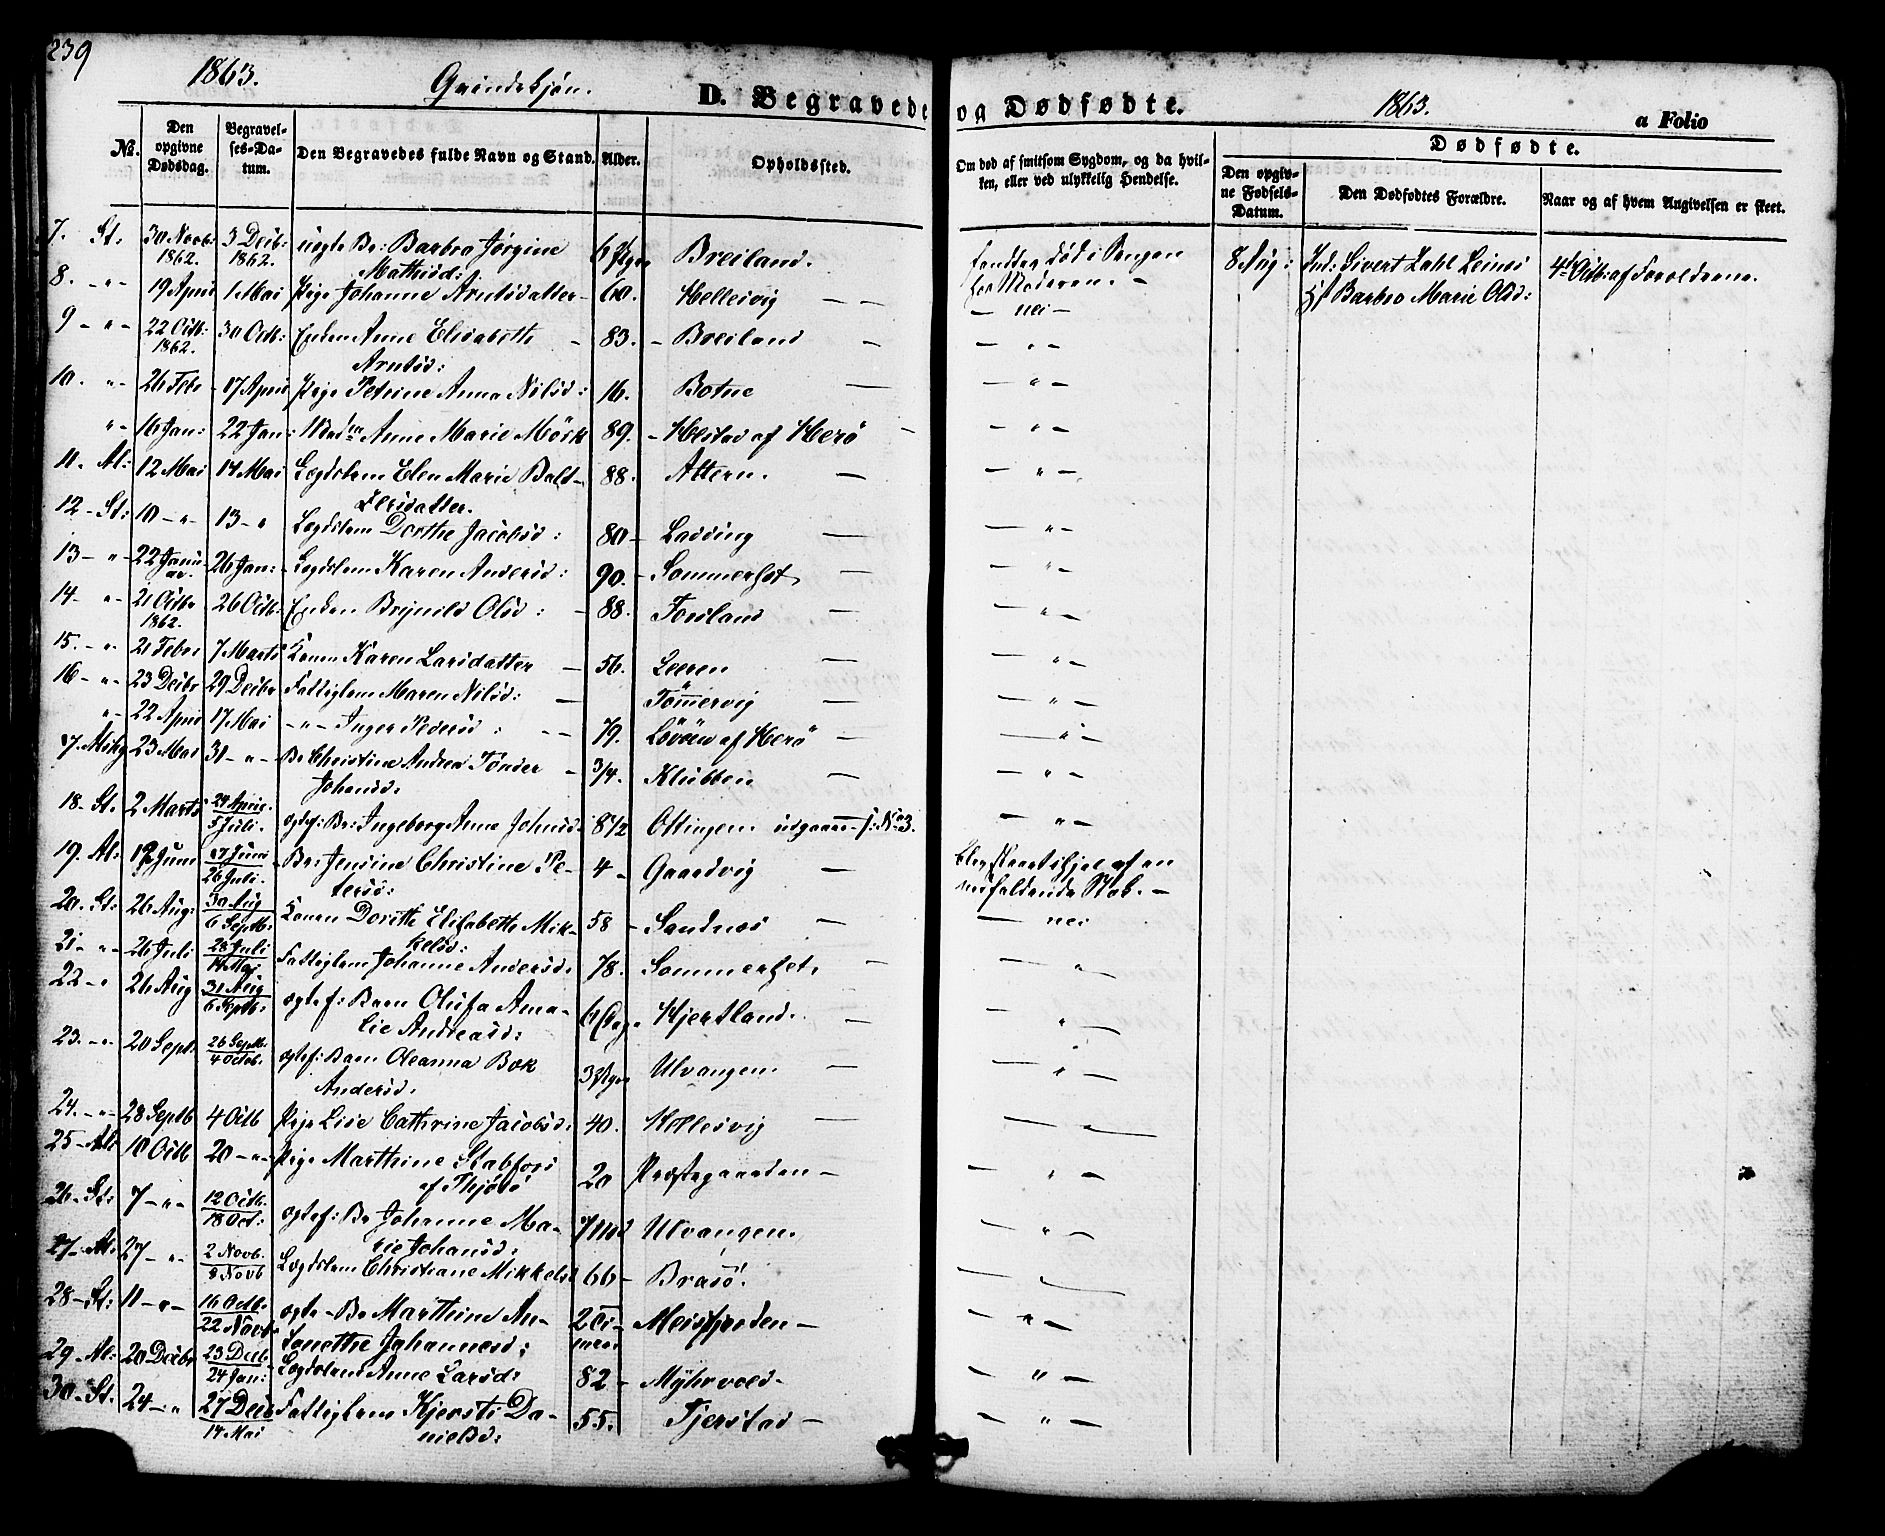 239
1863. Qvindekjøn. D. Begravede og Dødfødte. 1863. a Folio
No. Den opgivne Dødsdag. Begravelses-Datum. Den Begravedes fulde Navn og Stand. Alder. Opholdssted. Om død af smitsom Sygdom, og da hvilken, eller ved ulykkelig Hendelse. Dødfødte.
Den opgivne Fødsels-Datum. Den Dødfødtes Forældre. Naar og af hvem Angivelsen er skeet.
7. St: 30 Novb: 1862. 3 Decb: 1862. Barbro Jørgine Mathisd: 6 Breiland. død i Sengen hos Moderen. 8 Aug: Ind: Sivert Zahl Leines 4d Octb: af Forældrene.
Barbro Marie Olsd:
8. - " - 19 April 1 Mai Pige Johanne Arntsdatter 60. Hellesvig - nei -
9 - " - 22 Octb: 1862. 30 Octb: Enken Anne Elisabeth Arntsd: 83. - Breiland - " -
10. " - 26 Febr 17 April Pige Petrine Anna Nilsd: 16. Botne - " -
" - 16 Jan: 22 Jan: Anne Marie Mörk 89. - Hestad af Herö - " -
11. Al: 12 Mai 14 Mai Lægdslem Elen Marie Baltzersdatter. 88. Altern. - " -
12 - St: 10 - " - 13 - " Lægdslem Dorthe Jacobsd: 80 - Ladding - " -
13 - " - 22 Januar. 26 Jan: Lægdslem Karen Andersd: 90. - Sommerset - " -
14 - " - 21 Octbr 1862. 26 Octb. Enken Brynild Olsd: 88. Forsland - " -
15. - " 21 Febr 7 Marts Konen Karen Larsdatter 56. Leeren - " -
16 - " - 23 Decbr 29 Decbr Fattiglem Maren Nilsd: Tömmervig - " -
" - 22 April 17 Mai - " - Inger Pedersd: 79. Lövöen af Herö - " -
23 Mai 31 - " - Br Christine Andrea Tönder Johansd: 3/4. Klubben - " -
18 - St. 2 Marts 5 Juli. ægtef: Br: Ingeborg Anna Johnsd. 8 1/2 Ottingen udgaaer - " -
19. Al: 17 Juni 26 Juli. Br: Jensine Christine Petersd: 4 - Gaardvig Blev slaaet ihjel af en nedfaldende Stok. -
20. St: 26 Aug: 30 Aug 6 Septb: Konen Dorthe Elisabeth Mikkelsd: 58 - Sandnes - nei
21 - " - 26 Juli 28 Juli Fattiglem Johanne Andersd. 78. Sommerset. - " -
22 - " 26 Aug 31 Aug 6 Septb: ægtef: Barn Olufa Amalie Andreasd: 6 Hjertland. - " -
23. - " 20 Sept: 26 Septb: 4 Octob. ægtef: Barn Oleanna Bok Andersd. Ulvangen. - " -
24. - " - 28 Septb 4 Octb Pige Lise Cathrine Jacobsd. 40. Hellesvig - " -
25 - Al: 10 Octb 20 - " - Pige Marthine Stabfors af Thjötö 20 Præstegaarden - - " -
26 - St: 7 - " - 12 Octb. 18 Oct: ægtef: Br Johanne Malie Johansd: 7 Ulvangen. - " -
27 - Al: 27 - " 2 Novb. 8 Novb Lægdslem Christiane Mikkelsd 66 - Brasö.
28 - St: 11 - " - 16 Octb. 22 Novb ægte - Br Marthine Anne Johannesd: 2 Meisfjorden - - " -
29 - Al: 20 Decbr 23 Decb. 24 Jan: Lægdslem Anne Larsd: 82 - Myhrvold - - " -
30 - St: 24 - " 27 Decb 14 Mai Fattiglem Kjersti Danielsd: 55. Tjerstad - - " -